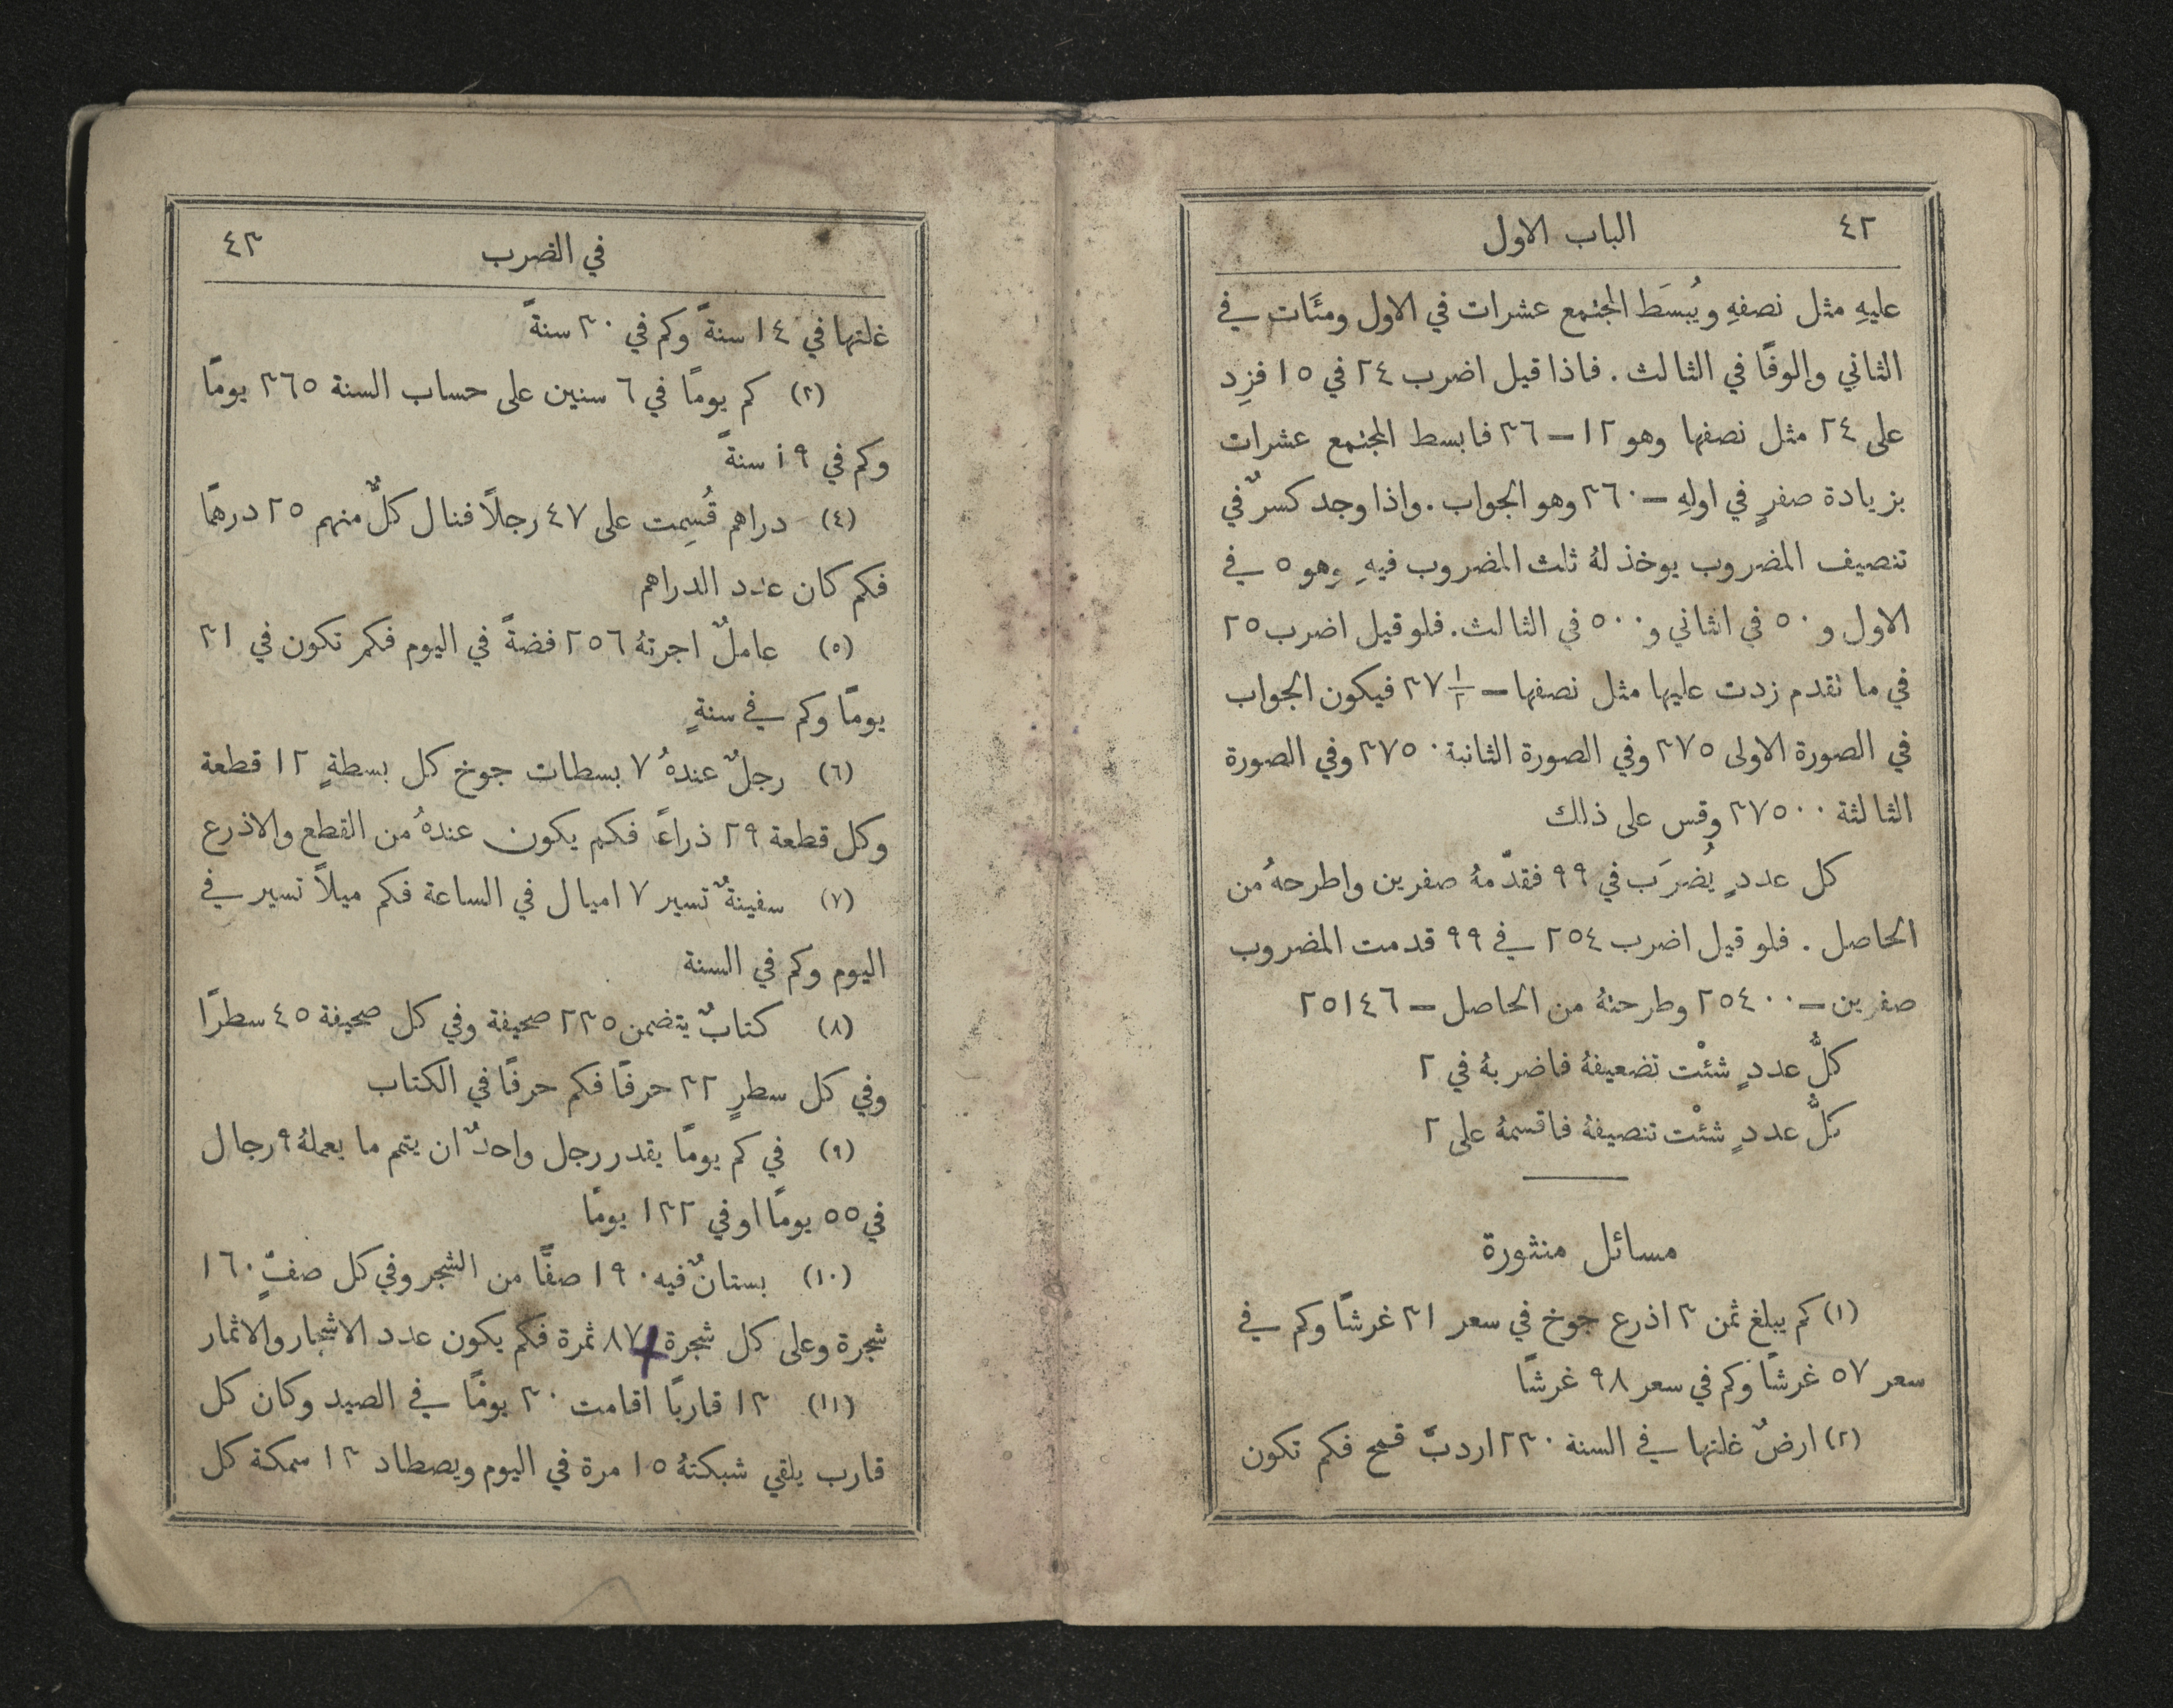 ٤٢ الباب الاول
عليهِ مثل نصفهِ ويُبسَط المجتمع عشرات في الاول ومئَات في
الثاني والوفًا في الثالث . فاذا قيل اضرب ٢٤ في ١٥ فزِد
على ٢٤ مثل نصفها وهو ١٢ — ٣٦ فابسط المجتمع عشرات
بزيادة صفرٍ في اولهِ — ٣٦٠ وهو الجواب . واذا وجد كسرٌ في
تنصيف المضروب يوخذ لهُ ثلث المضروب فيهِ وهو ٥ في
الاول و ٥٠ في الثاني و ٥٠٠ في الثالث . فلو قيل اضرب ٢٥
في ما نقدم زدت عليها مثل نصفها — ٣٧ ١/٢ فيكون الجواب
في الصورة الاولى ٣٧٥ وفي الصورة الثانية ٣٧٥٠ وفي الصورة
الثالثة ٣٧٥٠٠ وقس على ذلك
كل عددٍ يُضرَب في ٩٩ فقدّمهُ صفرين واطرحهُ من
الحاصل . فلو قيل اضرب ٢٥٤ في ٩٩ قدمت المضروب
صفرين — ٢٥٤٠٠ وطرحتهُ من الحاصل — ٢٥١٤٦
كلُّ عددٍ شئْت تضعيفهُ فاضربهُ في ٢
كلُّ عددٍ شئْت تنصيفهُ فاقسمهُ على ٢
مسائل منثورة
(١) كم يبلغ ثمن ٣ اذرع جوخ في سعر ٣١ غرشًا وكم في
سعر ٥٧ غرشًا وكم في سعر ٩٨ غرشًا
(٢) ارضٌ غلتها في السنة ٢٣٠ اردبَّ قمح فكم تكون
في الضرب ٤٣
غلتها في ١٤ سنةً وكم في ٣٠ سنةً
(٣) كم يومًا في ٦ سنين على حساب السنة ٣٦٥ يومًا
وكم في ١٩ سنةً
(٤) دراهم قُسِمت على ٤٧ رجلاً فنال كلٌّ منهم ٢٥ درهمًا
فكم كان عدد الدراهم
(٥) عاملٌ اجرتهُ ٢٥٦ فضةً في اليوم فكم تكون في ٣١
يومًا وكم في سنةٍ
(٦) رجلٌ عندهُ ٧ بسطات جوخ كل بسطةٍ ١٢ قطعة
وكل قطعة ٢٩ ذراعًا فكم يكون عندهُ من القطع والاذرع
(٧) سفينةٌ تسير ٧ اميال في الساعة فكم ميلاً تسير في
اليوم وكم في السنة
(٨) كتابٌ يتضمن ٢٣٥ صحيفة وفي كل صحيفة ٤٥ سطرًا
وفي كل سطرٍ ٣٢ حرفًا فكم حرفًا في الكتاب
(٩) في كم يومًا يقدر رجل واحدٌ ان يتمم ما يعملهُ ٩ رجال
في ٥٥ يومًا او في ١٣٢ يومًا
(١٠) بستانٌ فيه ١٩٠ صفًّا من الشجر وفي كل صفٍّ ١٦٠
شجرة وعلى كل شجرة ٨٧ ثمرة فكم يكون عدد الاشجار والاثمار
(١١) ١٣ قاربًا اقامت ٣٠ يومًا في الصيد وكان كل
قارب يلقي شبكتهُ ١٥ مرة في اليوم ويصطاد ١٣ سمكة كل